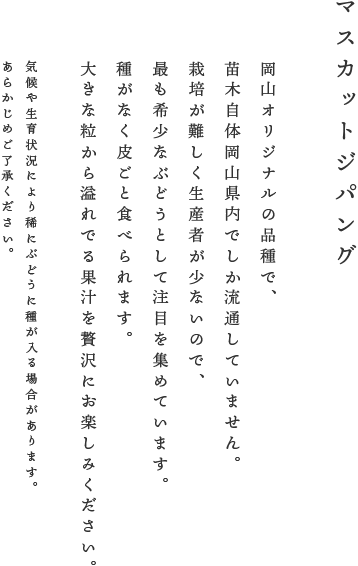 マスカットジパング
岡山オリジナルの品種で、
苗木自体岡山県内でしか流通していません。
栽培が難しく生産者が少ないので、
最も希少なぶどうとして注目を集めています。
種がなく皮ごと食べられます。
大きな粒から溢れでる果汁を贅沢にお楽しみください。
気候や生育状況により稀にぶどうに種が入る場合があります。
あらかじめご了承ください。